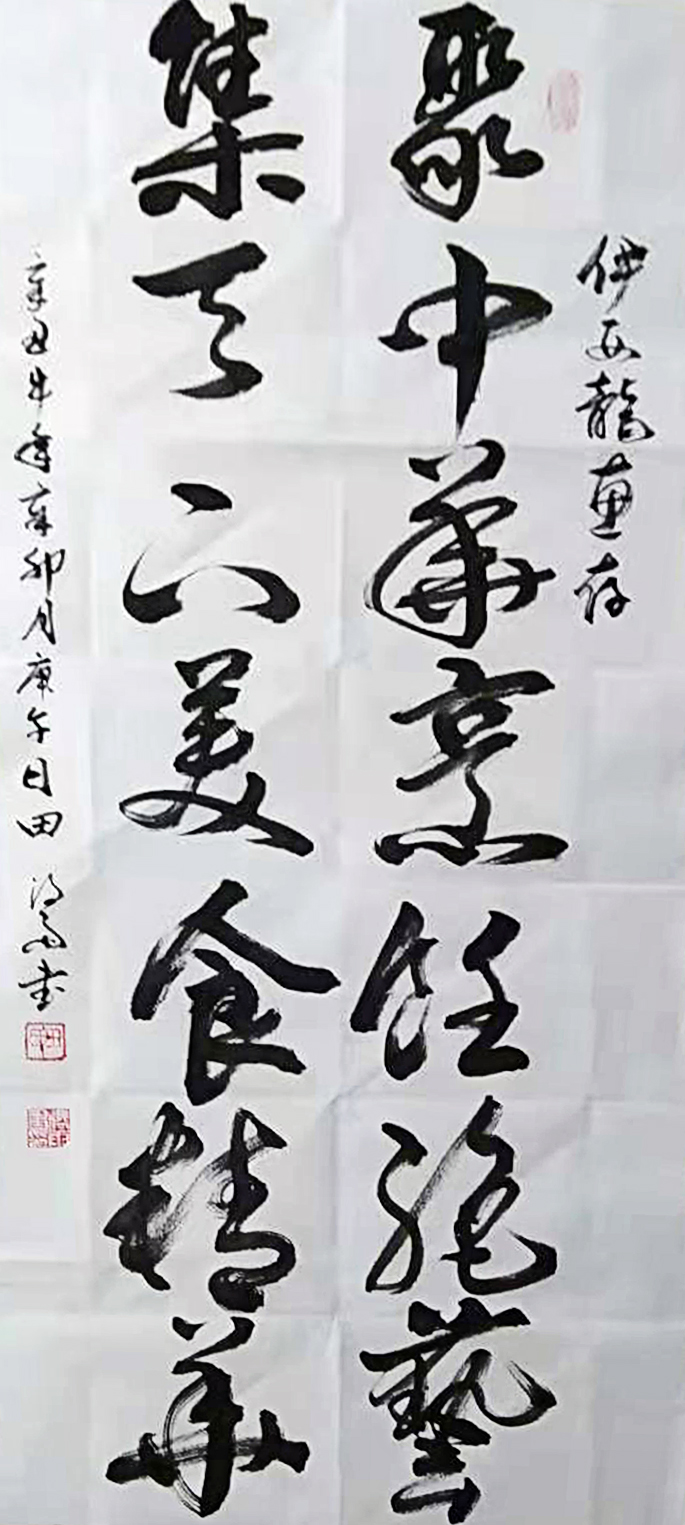 龍惠存
聚中華烹飪絶藝
集天下美食精華
辛丑牛年辛卯月庚午日田 书